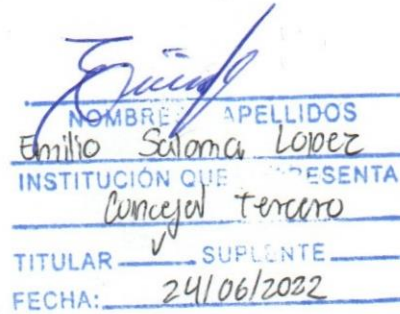 NOMBRE APELLIDOS
Emilio Saloma Lopez
INSTITUCIÓN QUE RESENTA
Concejal tercero
TITULAR ✓ SUPLENTE
FECHA: 24/06/2022